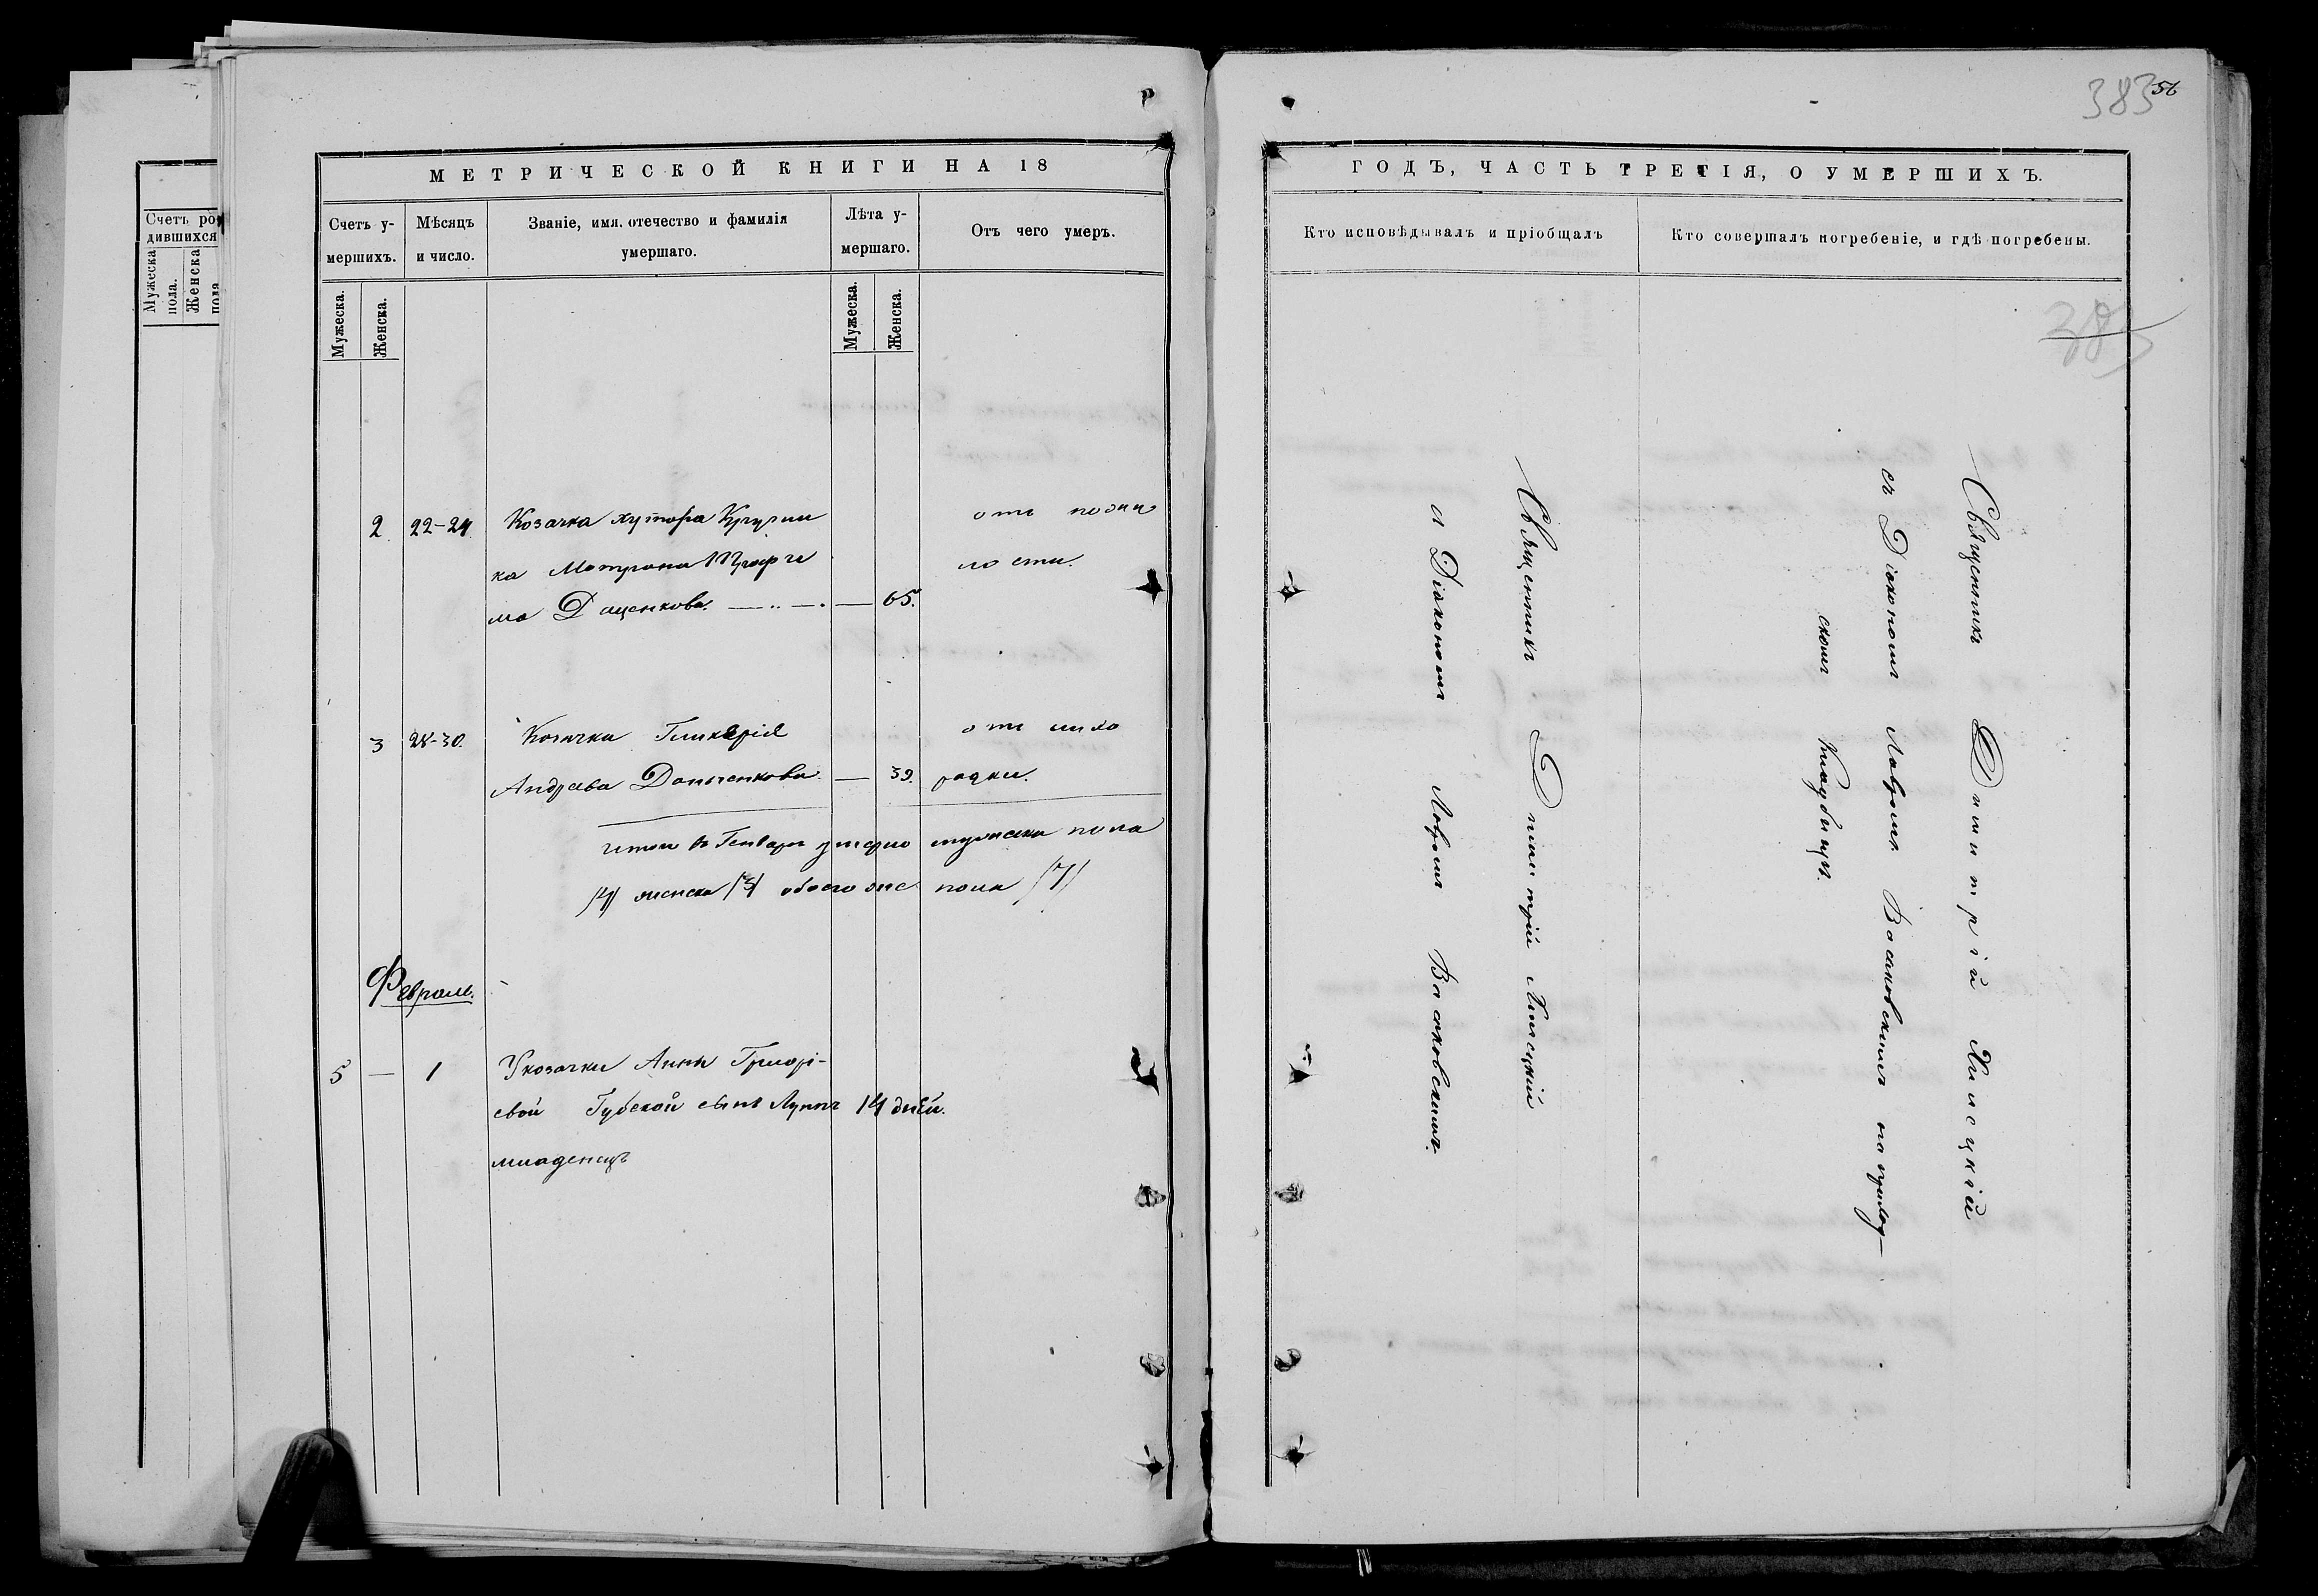 Счетъ ро-
дившихся
Мужеска
пола.
Женска
пола
МЕТРИЧЕСКОЙ КНИГИ НА 18
Счетъ у-
мершихъ.
Мѣсяцъ
и число.
Званіе, имя, отечество и фамилія
умершаго.
Лѣта у-
мершаго.
Отъ чего умеръ.
Мужеска.
Женска.
Мужеска.
Женска.
2 22-24 Козачка хутора
ка Мотрона
ма Даценкова. 65.
отъ
лости.
3 28-30. Козачка Гликерія
Андреева 39.
отъ лихо
радки.
Итого въ Генваре умерло мужеска пола
/4/ женска /3/ обоего же пола /7/
Февраль.
5 — 1 У козачки Анны Григорі-
евой Губской сынъ 14 дней.
младенецъ
383
56
ГОДЪ, ЧАСТЬ ТРЕТІЯ, О УМЕРШИХЪ.
Кто исповѣдывалъ и пріобщалъ
Кто совершалъ погребеніе, и гдѣ погребены.
383
Священникъ Димитрій
съ Діакономъ на приход-
скомъ Кладбищѣ.
Священникъ Димитрій
и Діакономъ